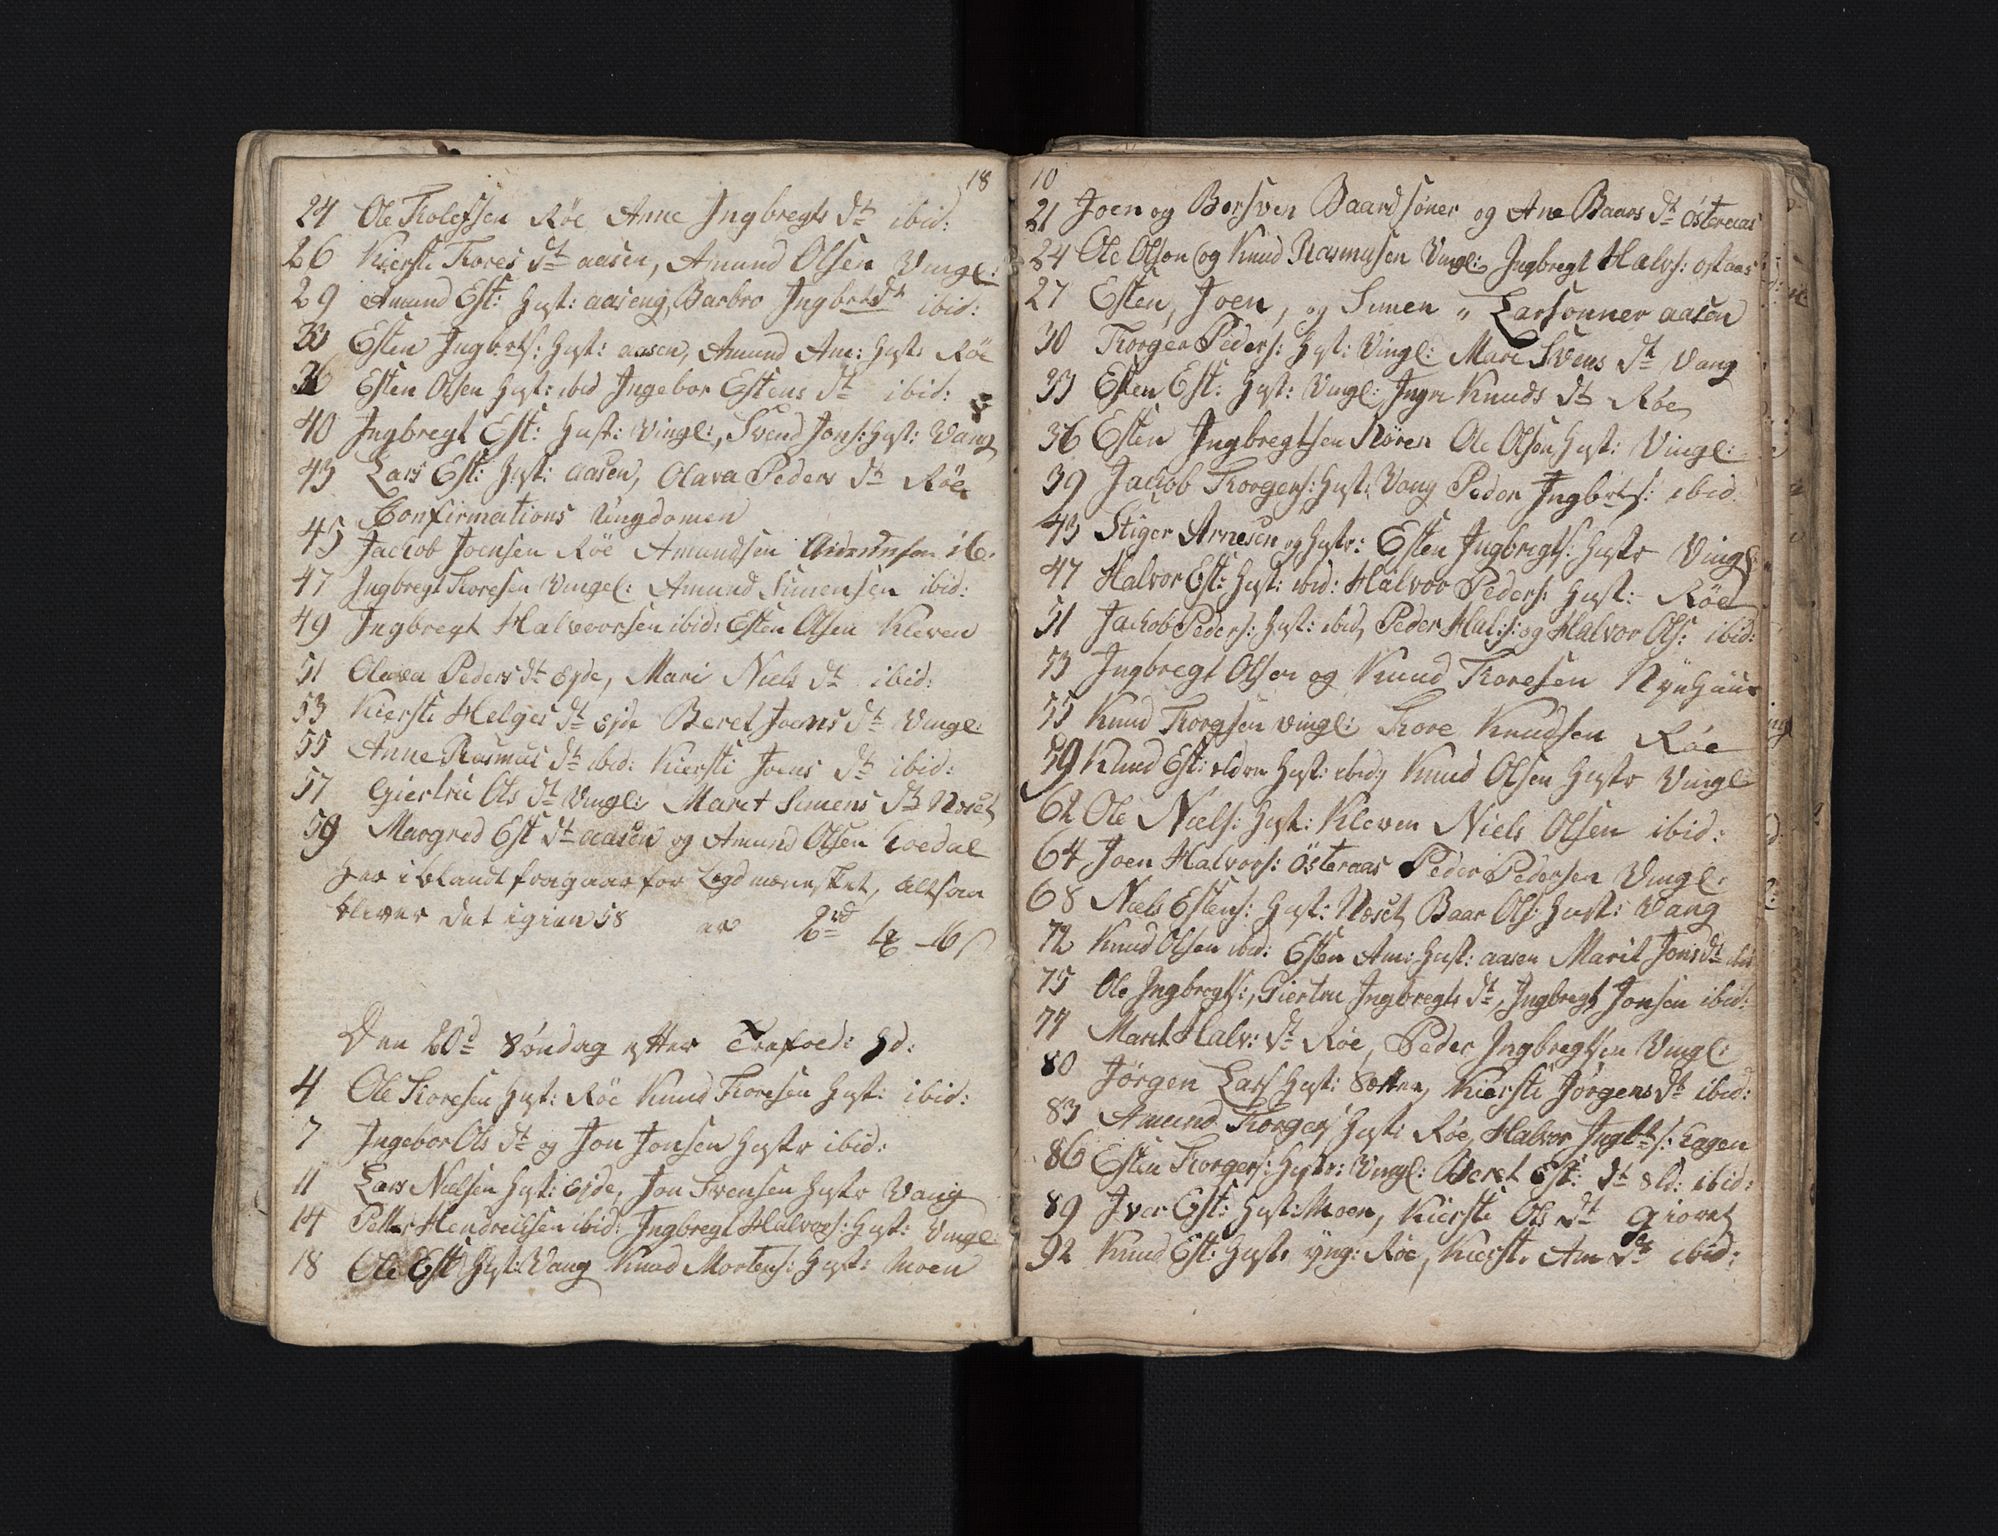 18
24 Ole Tolefsen Röe Anne Ingbregts dt ibid:
26 Kiersti Tores dt aasen, Amund Olsen Vingl:
29 Amund Est: Hust: aaseng, Barbro Ingbrtsdt ibid:
33 Esten Ingbrts: Hust: aasen, Amund Am: Hustr Röe
36 Esten Olsen Hust: ibid Ingebor Estens dt ibid:
40 Ingbregt Est: Hustr: Vingl:, Svend Jons: Hust: Vang
43 Lars Est: Hust: aasen, Olava Peders dt Röe
Confirmations Ungdomen
45 Jacob Joensen Röe Amundsen ib:
47 Ingbregt Toresen Vingel: Amund Simensen ibid:
49 Ingbregt Halvoorsen ibid: Esten Olsen Kleven
51 Olava Peders dt Eyde, Mari Niels dt ibid:
53 Kiersti Helges dt Eyde Beret Joens dt Vingl:
55 Anne Rasmus dt ibid: Kiersti Joens dt ibid:
57 Giertru Ols dt Vingl: Marit Simens dt Noset
59 Margred Est dt aasen og Amund Olsen Loedal
her iblandt fragaar for Legd mennesket, altsaa
bliver det igien 58 er 2rd
Den 20d Söndag efter Trefold: hd:
4 Ole Toresen Hust: Röe Knud Toresen Hust: ibid:
7 Ingebor Ols dt og Jon Jonsen Hustr ibid:
11 Lars Nielsen Hust: Eyde, Jon Svensen Hustr Vang
14 Petter Hendrichsen ibid: Ingbregt Halvors: Hust: Vingl:
18 Ole Est Hust: Vang Knud Mortens: Hust: Moen
10
21 Joen og Borsven Baardsöner og Ane Baars dt österaas
24 Ole Olson og Knud Rasmusen Vingl: Ingbregt Halvs: ostaas
27 Esten, Joen, og Simen „ Larsonner aasen
30 Torger Peders: Hust: Vingl: Mare Svens dt Vang
33 Esten Est: Hust: Vingl: Ingr Knuds dt Röe
36 Esten Ingbregtsen Noren Ole Olson Hust: Vingl:
39 Jacob Torgers: Hust: Vang Peder Ingbrts: ibid
43 Stiger Arnesen og Hustr: Esten Ingbregts: Hustr Vingl
47 Halvor Est: Hust: ibid: Halvor Peders: Hust: Röe
51 Jachob Peders: Hust: ibid, Peder Hal:s: og Halvor Ols: ibid:
53 Ingbregt Olsen og Knud Toresen Nyehuus
55 Knud Torgsen Vingl: Tore Knudsen Röe
59 Knud Est: eldre Hust: ibid; Knud Olsen Hustr Vingl
62 Ole Niels: Hust: Kleven Niels Olsen ibid:
64 Joen Halvors: österaas Peder Pedersen Vingl:
68 Niels Estens: Hust: Noset Baar Ols: Hust: Vang
72 Knud Olsen ibid: Esten Am: Hust: aasen Marit Jons dt ibid
75 Ole Ingbregts:, Giertru Ingbregts dt, Ingbregt Jonsen ibid:
77 Marit Halv: dt Röe, Peder Ingbregtsen Vingl:
80 Jörgen Lars Hust: Sætter, Kiersti Jörgens dt ibid:
83 Amund Torgers Hust: Röe, Halvor Ingbts: Hagen
86 Esten Torgers: Hustr: Vingl: Beret Est: dt eld: ibid:
89 Iver Est: Hust: Moen, Kiersti Ols dt Giovet
92 Knud Est: Hustr yng: Röe, Kiersti Am dt ibid: